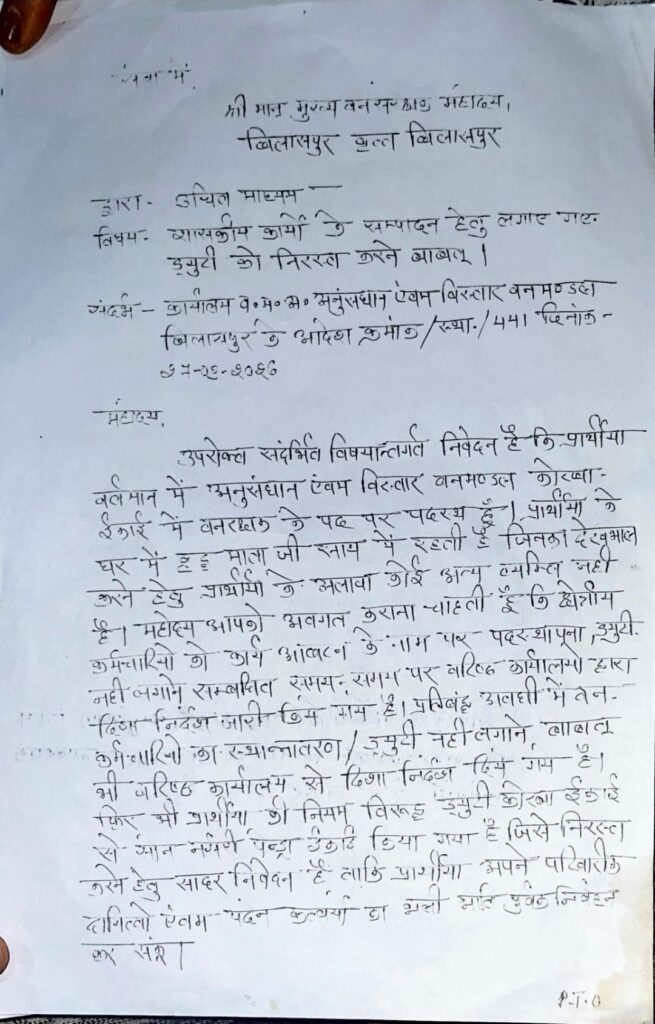 श्री मान् मुख्य वन संरक्षक महोदय,
बिलासपुर वृत्त बिलासपुर
द्वारा- उचित माध्यम
विषय- शासकीय कार्यो के सम्पादन हेतु लगाए गए
ड्युटी को निरस्त करने बाबत् ।
संदर्भ- कार्यालय व.म.अ. अनुसंधान एंवम विस्तार वनमण्डल
बिलासपुर के आदेश क्रमांक/स्था./441 दिनांक-
महोदय,
उपरोक्त संदर्भित विषयान्तर्गत निवेदन है कि प्रार्थीया
वर्तमान में अनुसंधान एंवम विस्तार वनमण्डल कोरबा-
ईकाई में वनरक्षक के पद पर पदस्थ हूँ। प्रार्थीया के
घर में वृद्ध माता जी साथ में रहती है जिनका देखभाल
करने हेतु प्रार्थीया के अलावा कोई अन्य व्यक्ति नही
है। महोदय आपको अवगत कराना चाहती हूँ कि क्षेत्रीय
कर्मचारियो को कार्य आंबटन के नाम पर पदस्थापना, ड्युटी
नही लगाने सम्बधित समय-समय पर वरिष्ठ कार्यालयो द्वारा
दिशा निर्देश जारी किये गये है। प्रतिबंध अवधी में वन-
कर्मचारियो का स्थान्तातरण/ड्युटी नही लगाने बाबत्
भी वरिष्ठ कार्यालय से दिशा निर्देश दिये गये है।
फिर भी प्रार्थीया की नियम विरूद्ध ड्युटी कोरबा ईकाई
से किया गया है जिसे निरस्त
करने हेतु सादर निवेदन है ताकि प्रार्थीया अपने पारिवारिक
दायित्वो एंवम कर्तव्यो का भली भांति पुर्वक निर्वहन
कर सकूं।
P.T.O